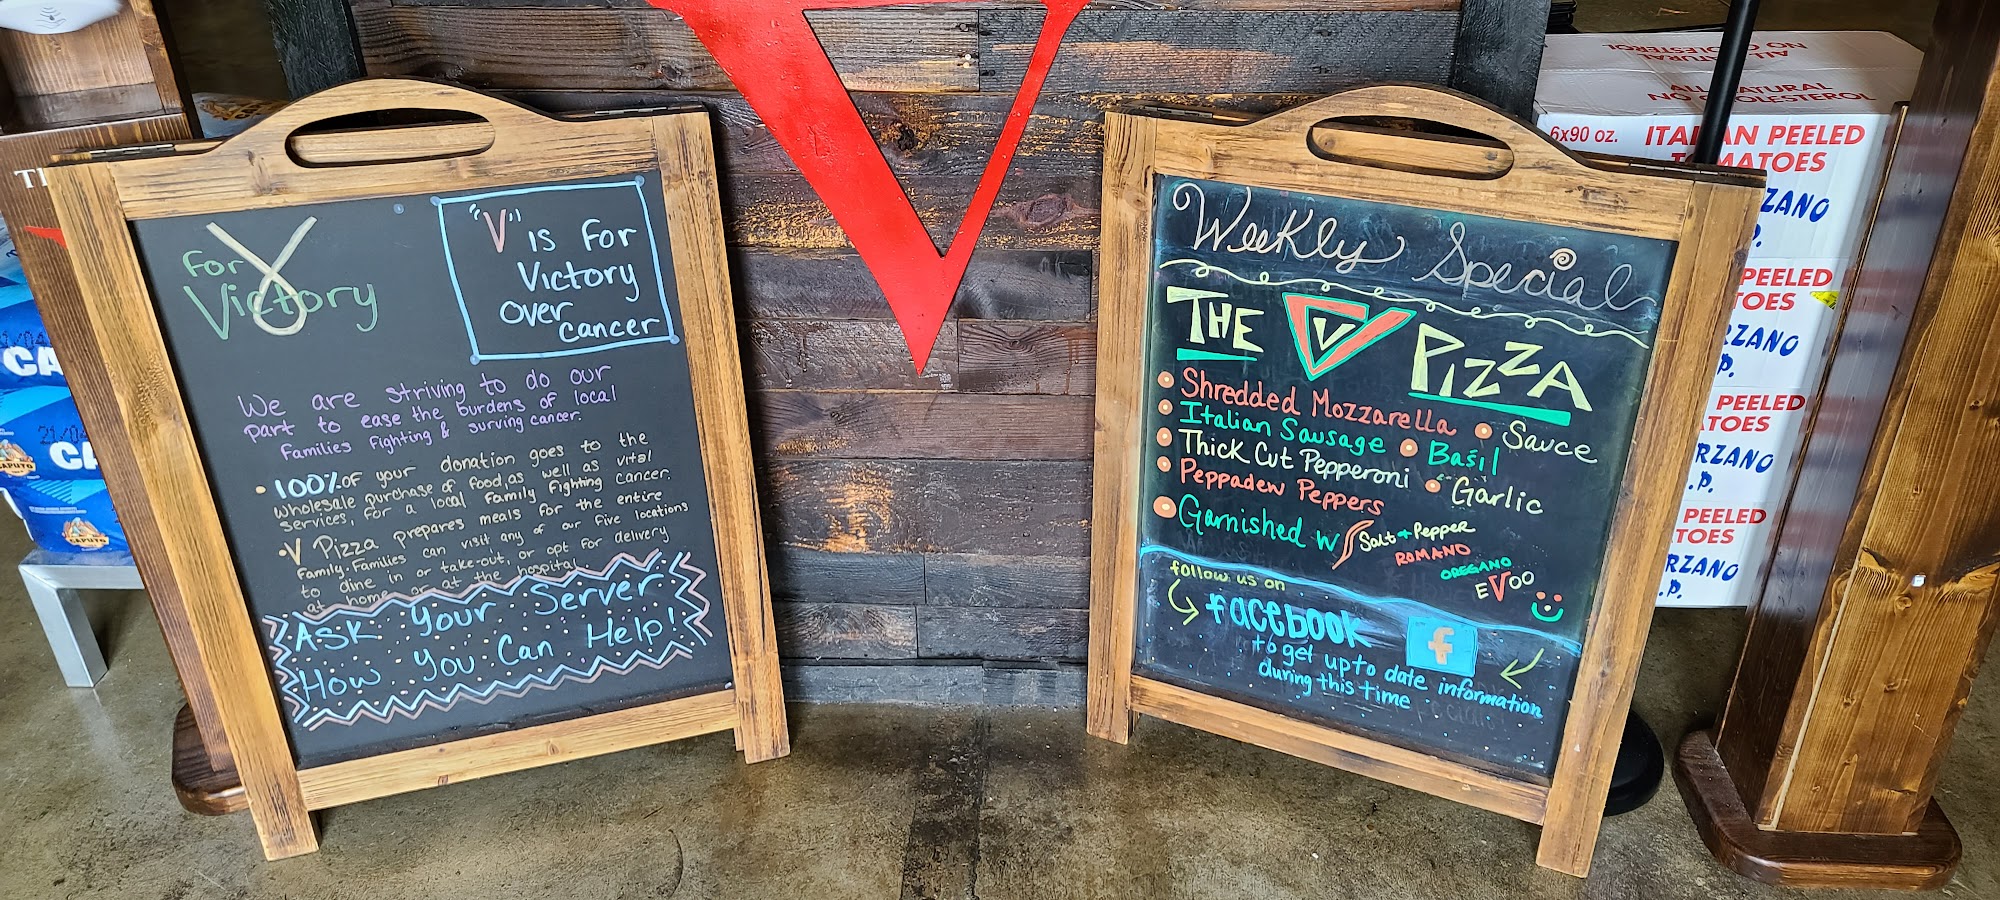 For
Victory
"V" is For
Victory
over
cancer
We are striving to do our
part to ease the burdens of local
Families Fighting & surving cancer.
• 100% of your donation goes to the
wholesale purchase of food, as well as vital
services, for a local Family Fighting cancer.
• V Pizza prepares meals for the entire
Family. Families can visit any of our five locations
to dine in or take-out, or opt for delivery
at home or at the hospital
Ask Your Server
How You Can Help!
Weekly Special
THE V PIZZA
Shredded Mozzarella • Sauce
Italian Sausage • Basil
Thick Cut Pepperoni • Garlic
Peppadew Peppers
Garnished w/ Salt + Pepper
ROMANO
OREGANO
EVOO
follow us on
facebook
f
to get up to date information
during this time
ALL NATURAL
NO CHOLESTEROL
6x90 oz. ITALIAN PEELED
TOMATOES
ZANO
P.
PEELED
TOES
RZANO
P.
PEELED
TOES
RZANO
.P.
PEELED
TOES
RZANO
.P.
CA
21/04
CA
CAPUTO
CAPUTO